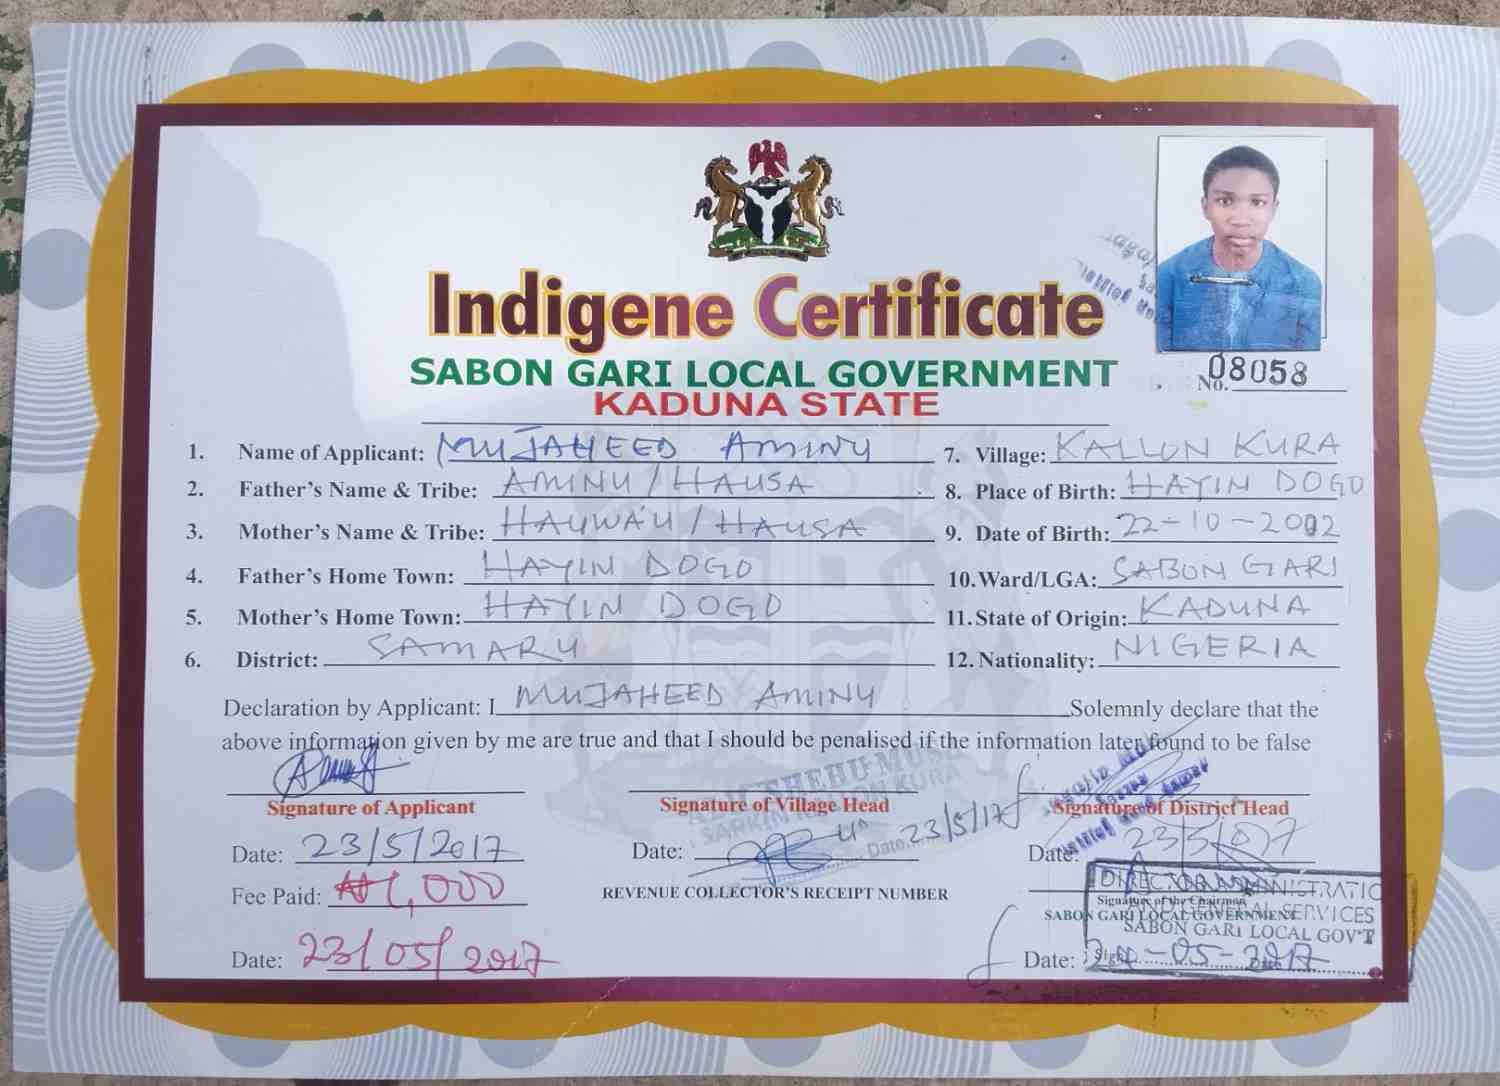 Indigene Certificate
SABON GARI LOCAL GOVERNMENT
KADUNA STATE
No. 08058
1. Name of Applicant: MUJAHEED AMINU
2. Father's Name & Tribe: AMINU / HAUSA
3. Mother's Name & Tribe: HAUWA'U / HAUSA
4. Father's Home Town: HAYIN DOGO
5. Mother's Home Town: HAYIN DOGO
6. District: SAMARU
7. Village: KALLON KURA
8. Place of Birth: HAYIN DOGO
9. Date of Birth: 22-10-2002
10. Ward/LGA: SABON GARI
11. State of Origin: KADUNA
12. Nationality: NIGERIA
Declaration by Applicant: I MUJAHEED AMINU Solemnly declare that the
above information given by me are true and that I should be penalised if the information later found to be false
Signature of Applicant
Date: 23/5/2017
Fee Paid: ₦1,000
Date: 23/05/2017
SHEHU MUSA
SARKIN KALLON KURA
Signature of Village Head
Date: 23/5/17
Date
REVENUE COLLECTOR'S RECEIPT NUMBER
Signature of District Head
Date:
DIRECTOR ADMINISTRATIO
Signature of the Chairman
AND GENERAL SERVICES
SABON GARI LOCAL GOVERNMENT
SABON GARI LOCAL GOV'T
Date: -05-2017
Sign
Date